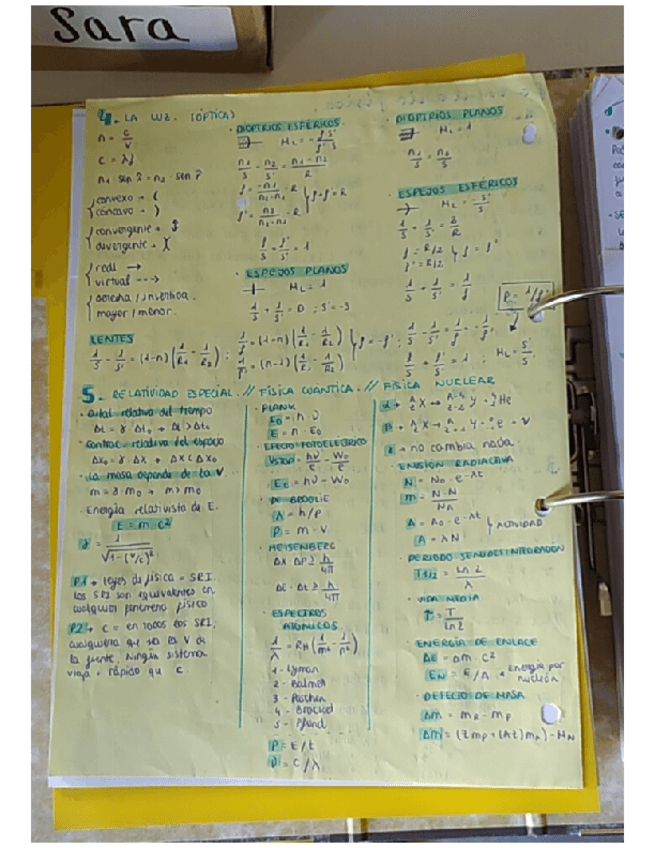 Sara
4. LA LUZ. (ÓPTICA)
n = c/v
c = λf
n₁ · sen î = n₂ · sen r̂
convexo → (
cóncavo → )
convergente →
divergente → )(
real →
virtual --->
derecha / invertida.
mayor / menor.
LENTES
1/s - 1/s' = (1-n) (1/R₁ - 1/R₂) ;
1/f = (1-n) (1/R₁ - 1/R₂)
1/f' = (n-1) (1/R₁ - 1/R₂)
f = -f' ;
1/s' - 1/s = 1/f' = -1/f
f/s + f'/s' = 1 ; ML = s'/s
P = 1/f'
DIOPTRIOS ESFÉRICOS
n₁/s - n₂/s' = (n₁ - n₂)/R
f + f' = R
f/s + f'/s' = 1
ESPEJOS PLANOS
ML = 1
1/s + 1/s' = 0 ; s' = -s
DIOPTRIOS PLANOS
ML = 1
n₁/s = n₂/s'
ESPEJOS ESFÉRICOS
ML = -s'/s
1/s + 1/s' = 2/R
f = R/2
f' = R/2
f = f'
1/s + 1/s' = 1/f
5. RELATIVIDAD ESPECIAL // FÍSICA CUÁNTICA // FÍSICA NUCLEAR
relativa del tiempo
Δt = γ · Δt₀ → Δt > Δt₀
· Contrac. relativa del espacio
Δx₀ = γ · Δx → Δx < Δx₀
· La masa depende de la V.
m = γ · m₀ → m > m₀
· Energía relativista de E.
E = m · c²
γ = 1/√(1 - (v/c)²)
P.1 → leyes de física = SRI.
Los SRI son equivalentes en
cualquier fenómeno físico
P.2 → c = en todos los SRI,
cualquiera que sea la V de
la fuente. Ningún sistema
viaja + rápido que c.
· PLANK
E₀ = h · ν
E = n · E₀
· EFECTO FOTOELÉCTRICO
Vstop = hν/e - W₀/e
Ec = hν - W₀
· DE BROGLIE
λ = h/p
p = m · v
· HEISENBERG
Δx · Δp ≥ h/4π
ΔE · Δt ≥ h/4π
· ESPECTROS
ATÓMICOS
1/λ = RH (1/m² - 1/n²)
1 - Lyman
2 - Balmer
3 - Paschen
4 - Bracket
5 - Pfund
P = E/t
ν = c/λ
γ → no cambia nada.
· EMISIÓN RADIACTIVA
N = N₀ · e^-λt
A = A₀ · e^-λt
A = λN
ACTIVIDAD
· PERIODO SEMIDESINTEGRACIÓN
T1/2 = Ln 2/λ
· VIDA MEDIA
τ = T/ln 2
· ENERGÍA DE ENLACE
ΔE = Δm · c²
EN = E/A → energía por nucleón
· DEFECTO DE MASA
Δm = mR - mP